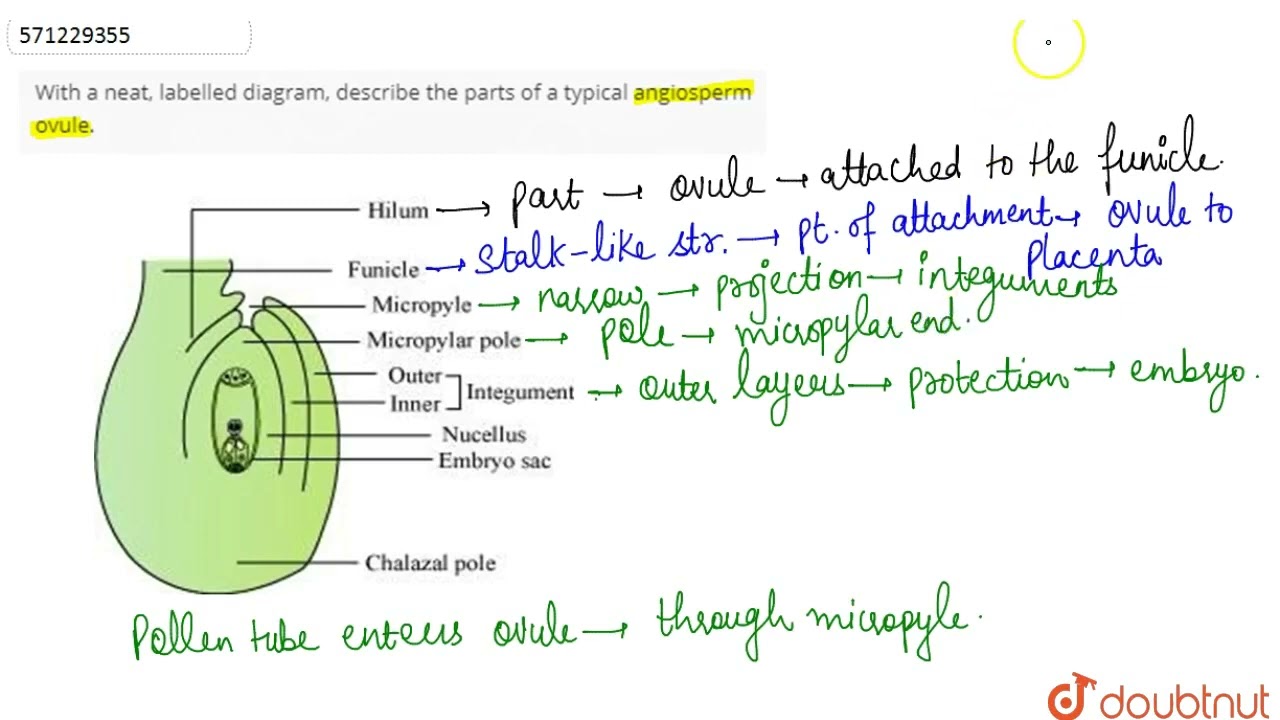 571229355
With a neat, labelled diagram, describe the parts of a typical angiosperm
ovule.
Hilum → part → ovule → attached to the funicle.
Funicle → Stalk-like str. → pt. of attachment → ovule to
placenta
Micropyle → narrow → projection → integuments
Micropylar pole → pole → micropylar end.
Outer
Inner
Integument → outer layers → protection → embryo.
Nucellus
Embryo sac
Chalazal pole
Pollen tube enters ovule → through micropyle.
doubtnut